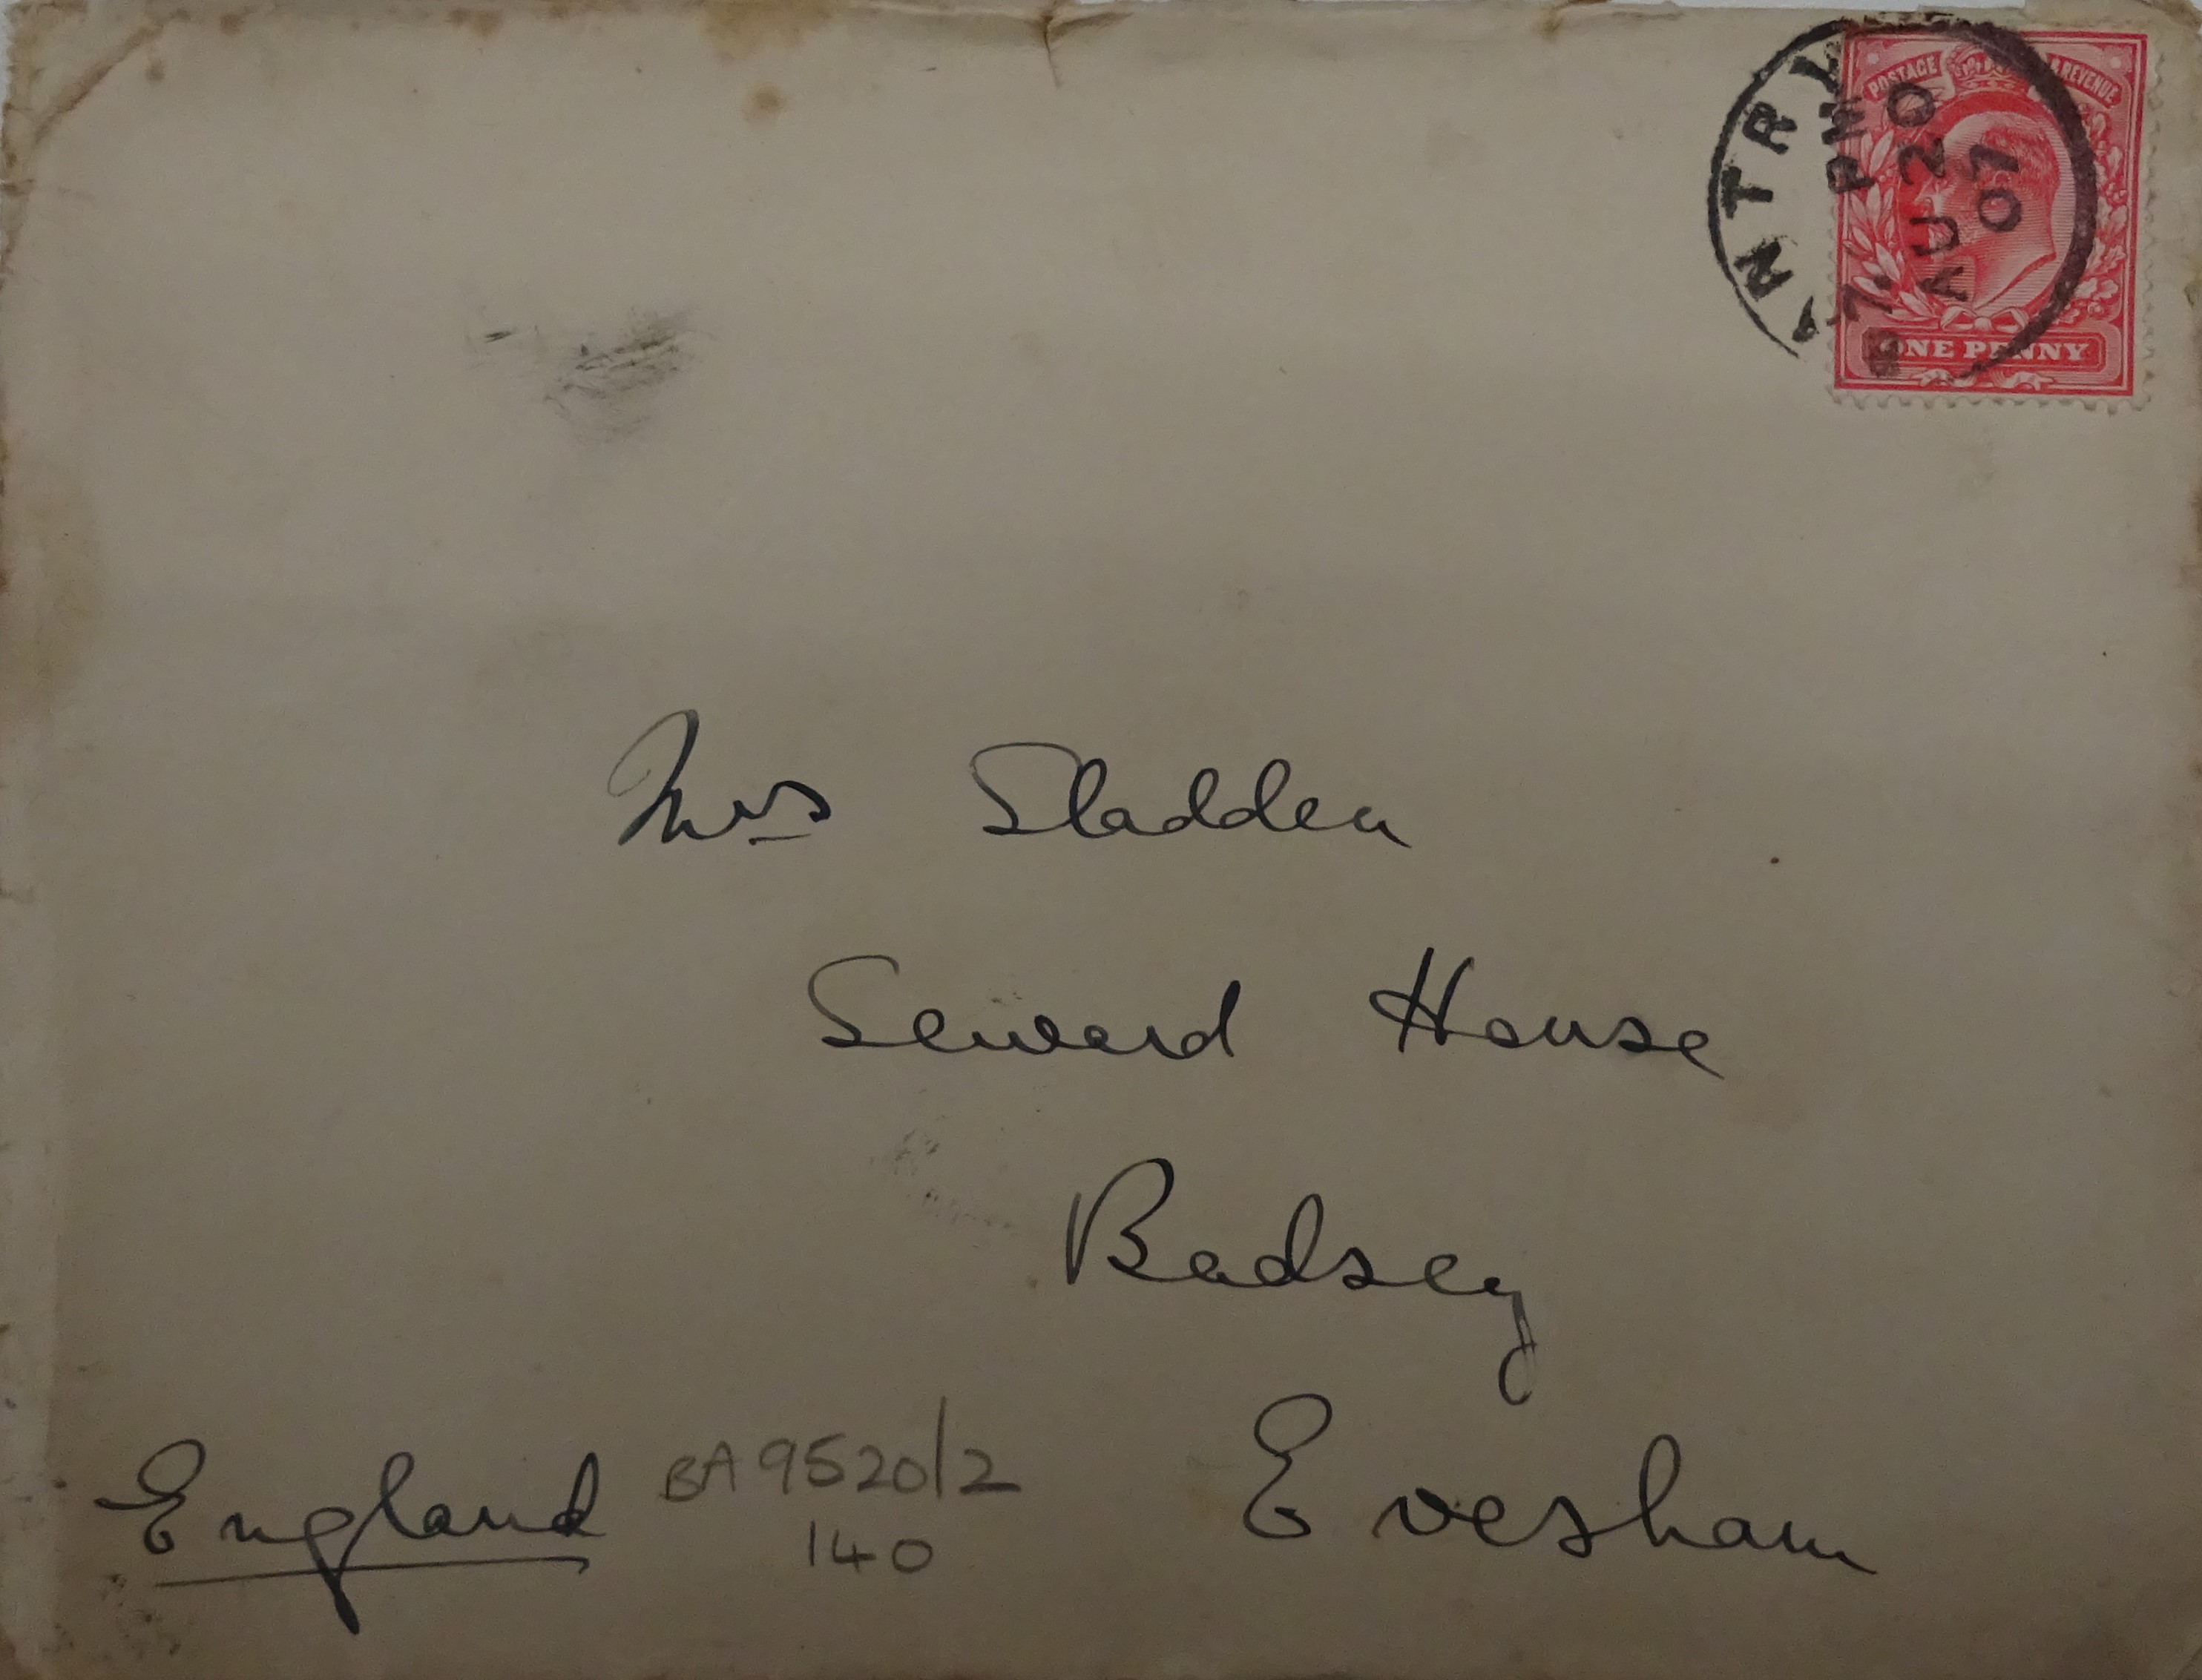 POSTAGE & REVENUE
NTRL
7. PM
AU 20
07
ONE PENNY
Mrs Sladden
Seward House
Badsey
Evesham
England
BA9520/2
140